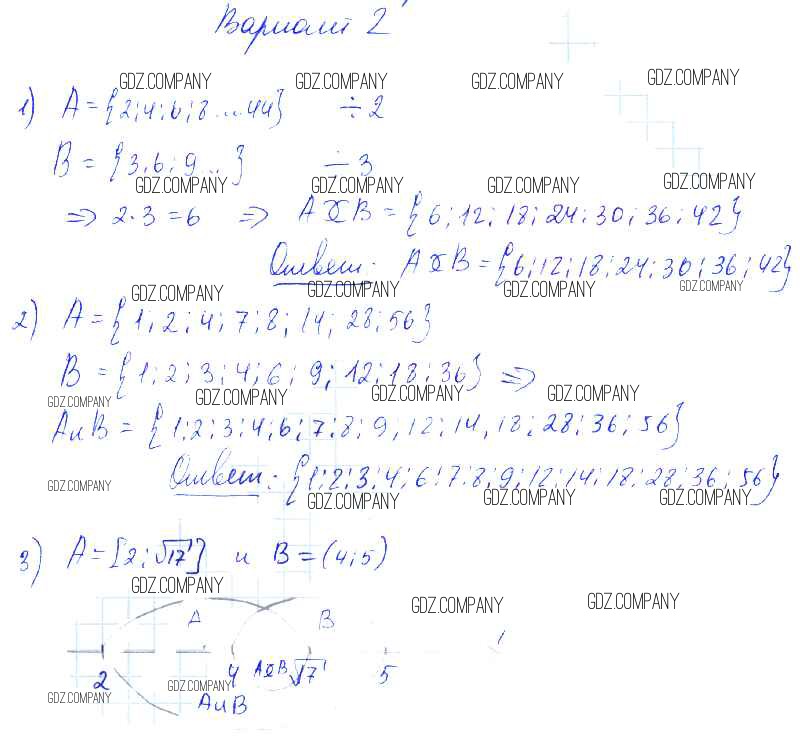 Вариант 2
GDZ.COMPANY GDZ.COMPANY GDZ.COMPANY GDZ.COMPANY
1) A = {2;4;6;8...44} ÷2
B = {3.6;9...} ÷3
GDZ.COMPANY GDZ.COMPANY GDZ.COMPANY GDZ.COMPANY
=> 2·3=6 => A и B = {6;12;18;24;30;36;42}
Ответ: A и B = {6;12;18;24;30;36;42}
GDZ.COMPANY GDZ.COMPANY GDZ.COMPANY GDZ.COMPANY
2) A = {1;2;4;7;8;14;28;56}
B = {1;2;3;4;6;9;12;18;36} =>
GDZ.COMPANY GDZ.COMPANY GDZ.COMPANY GDZ.COMPANY
A и B = {1;2;3;4;6;7;8;9,12;14,18;28;36;56}
Ответ: {1;2;3;4;6;7;8,9;12;14;18;28;36;56}
GDZ.COMPANY GDZ.COMPANY GDZ.COMPANY GDZ.COMPANY
3) A = [2;√17] и B = (4;5)
GDZ.COMPANY GDZ.COMPANY GDZ.COMPANY
A B
2 4 A и B √17 5
GDZ.COMPANY GDZ.COMPANY
A и B